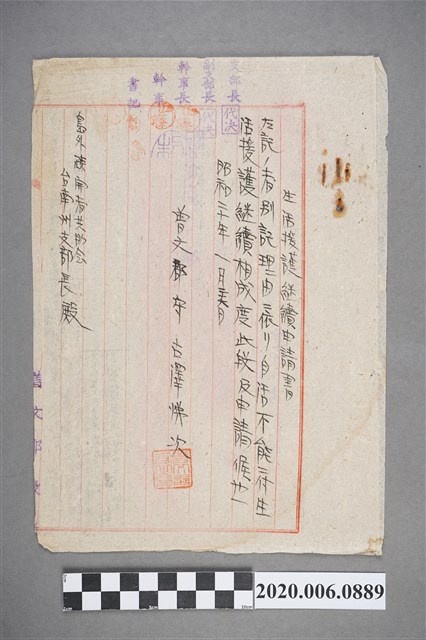 生活援護継續申請書
左記ノ者別記理由ニ依リ自活不能ニ付生
活援護継續相成度此段及申請候也
昭和二十年一月 日
曽文郡守 古澤 次
島外疎開者共助会
台南州支部長殿
支部長
副支部長 代決
幹事長 代決
幹事
書記
2020.006.0889